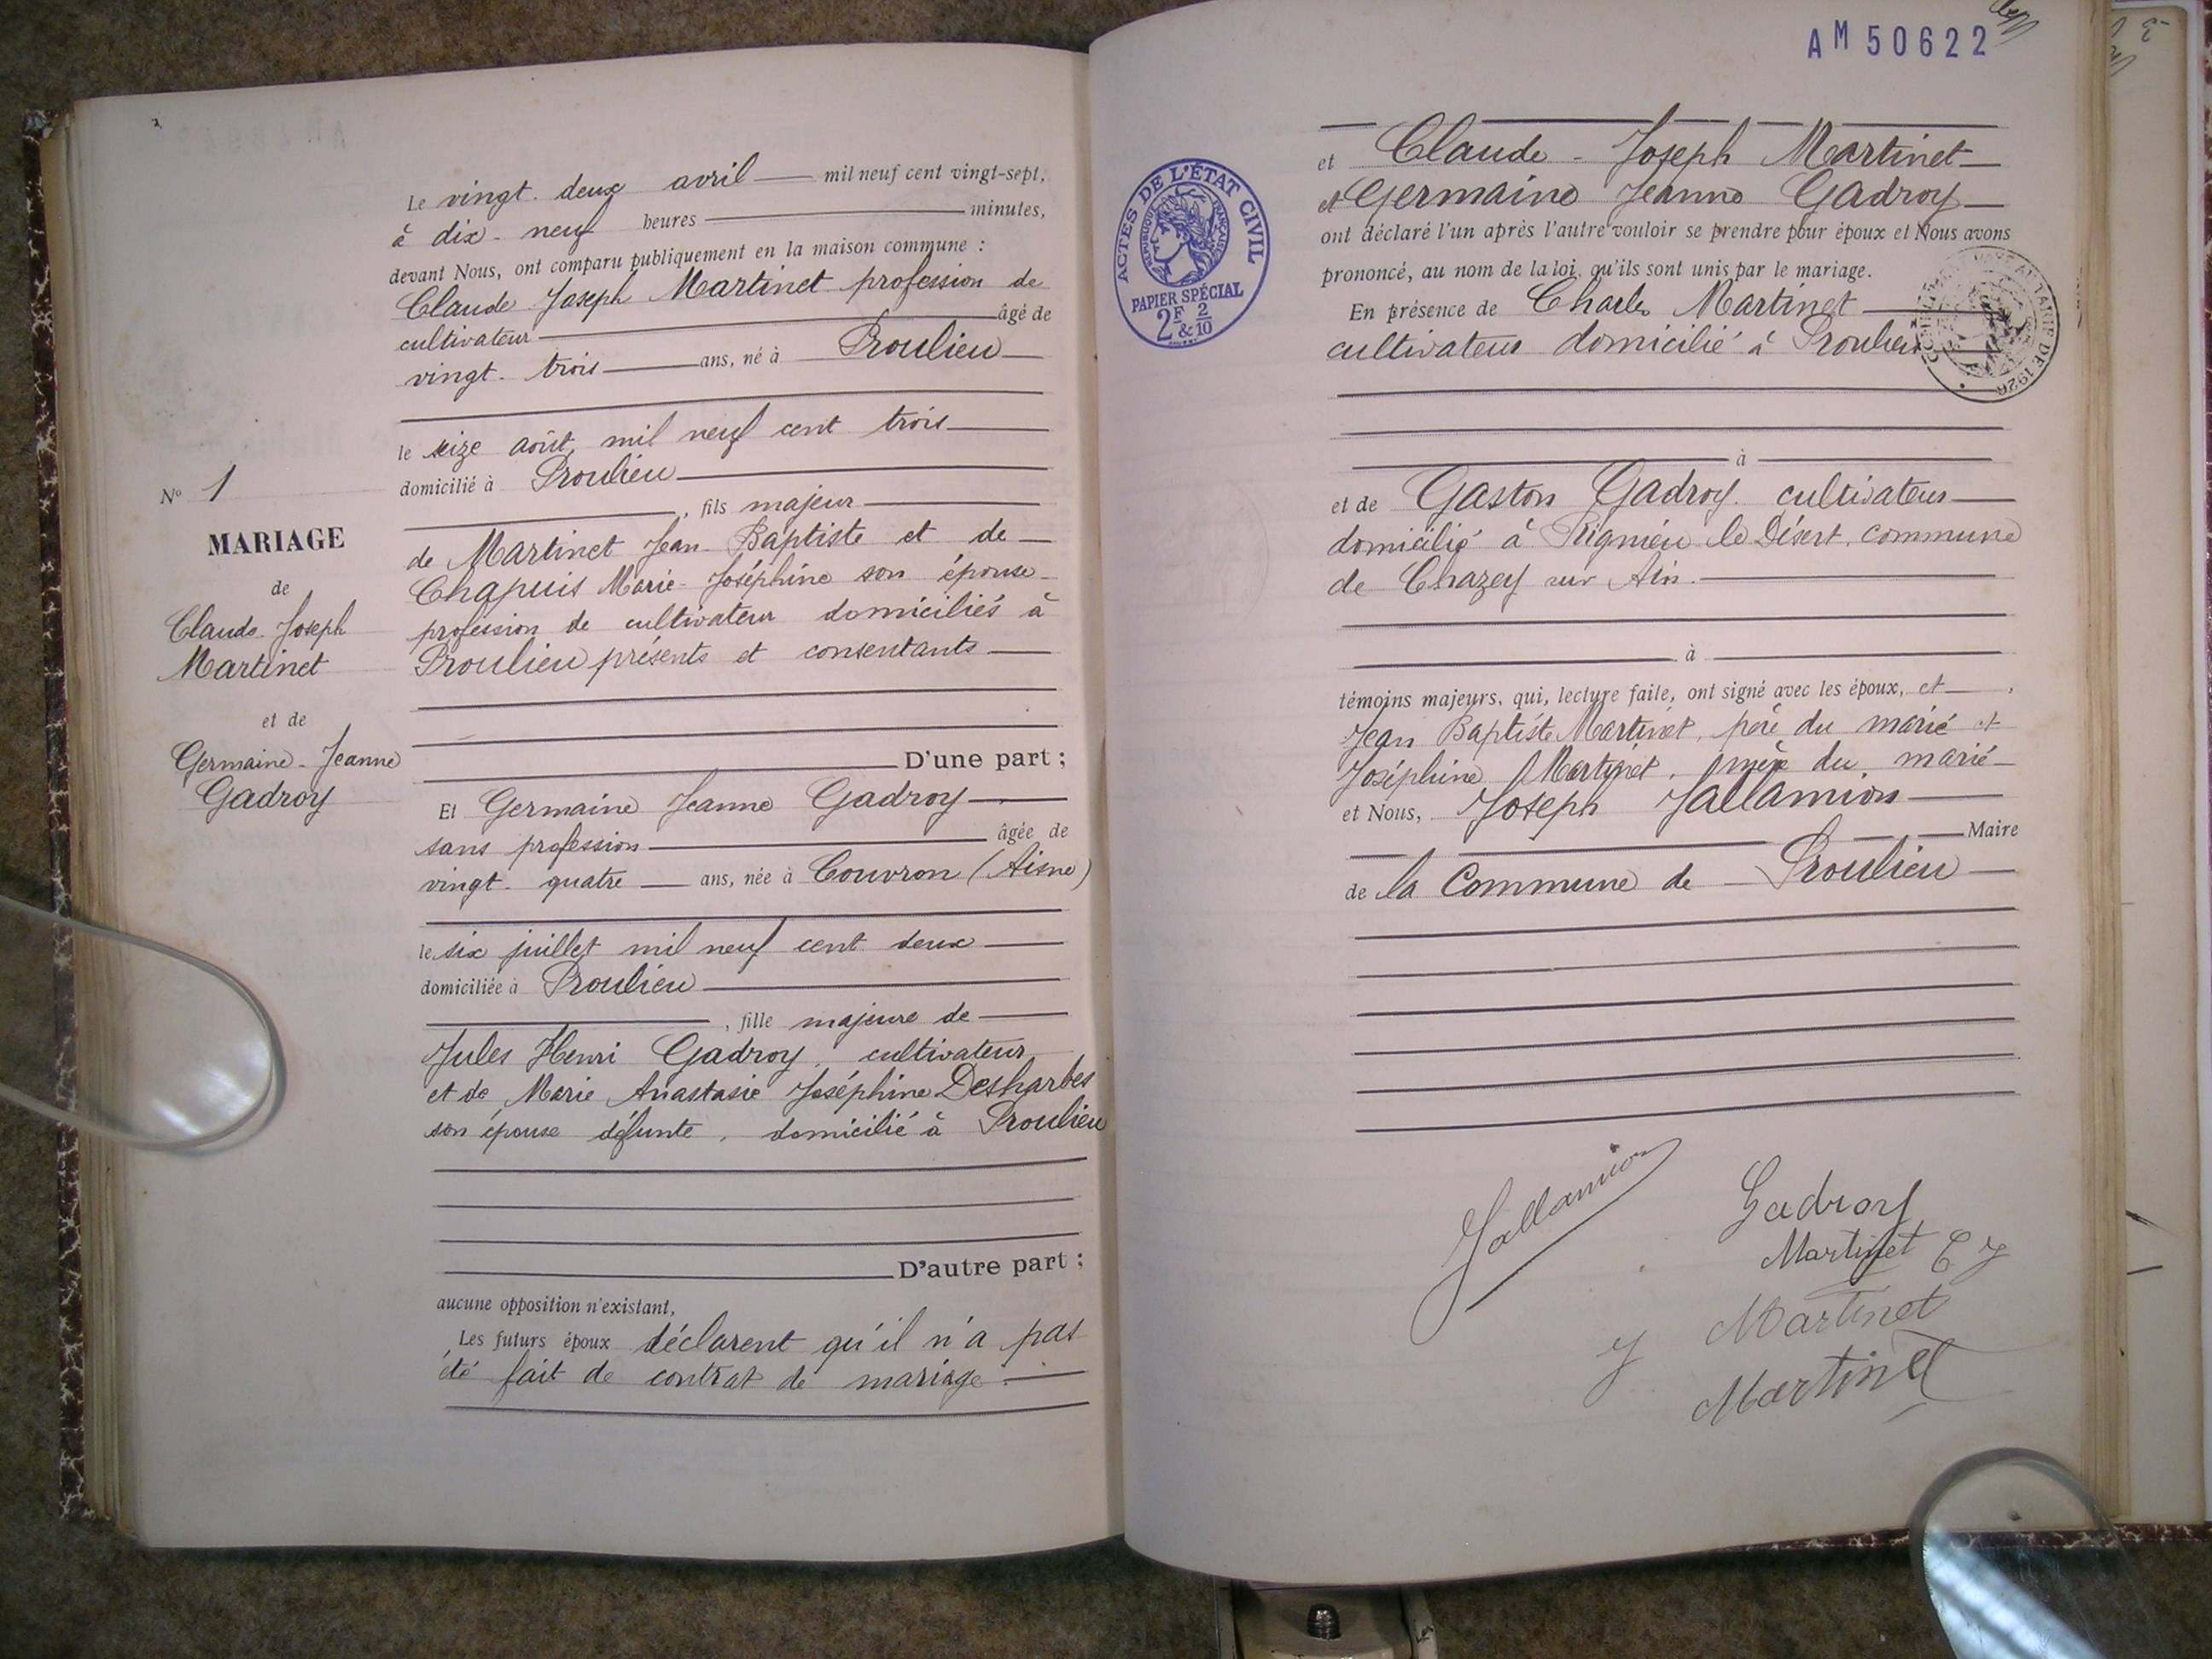 Le vingt-deux avril mil neuf cent vingt-sept,
à dix-neuf heures minutes,
devant Nous, ont comparu publiquement en la maison commune :
Claude Joseph Martinet profession de
cultivateur âgé de
vingt-trois ans, né à Proulieu
le seize août mil neuf cent trois
domicilié à Proulieu
, fils majeur
de Martinet Jean-Baptiste et de
Chapuis Marie-Joséphine son épouse
profession de cultivateur domiciliés à
Proulieu présents et consentants
D'une part ;
Nº 1
MARIAGE
de
Claude-Joseph
Martinet
et de
Germaine-Jeanne
Gadroy
Et Germaine Jeanne Gadroy
sans profession âgée de
vingt-quatre ans, née à Couvron (Aisne)
le six juillet mil neuf cent deux
domiciliée à Proulieu
, fille majeure de
Jules Henri Gadroy, cultivateur
et de Marie Anastasie Joséphine Desharbes
son épouse défunte, domicilié à Proulieu
D'autre part ;
aucune opposition n'existant,
Les futurs époux déclarent qu'il n'a pas
été fait de contrat de mariage.
AM 50622
ACTES DE L'ÉTAT CIVIL
RÉPUBLIQUE FRANÇAISE
PAPIER SPÉCIAL
2F & 2/10
et Claude-Joseph Martinet
et Germaine Jeanne Gadroy
ont déclaré l'un après l'autre vouloir se prendre pour époux et Nous avons
prononcé, au nom de la loi, qu'ils sont unis par le mariage.
En présence de Charles Martinet
cultivateur domicilié à Proulieu
à
et de Gaston Gadroy. cultivateur
domicilié à Rignieu le Désert, commune
de Chazey sur Ain.
à
témoins majeurs, qui, lecture faite, ont signé avec les époux, et ,
Jean Baptiste Martinet, père du marié et
Joséphine Martinet, mère du marié
et Nous, Joseph Jallamion
Maire
de la Commune de Proulieu
Jallamion
Gadroy
Martinet C J
J Martinet
Martinet